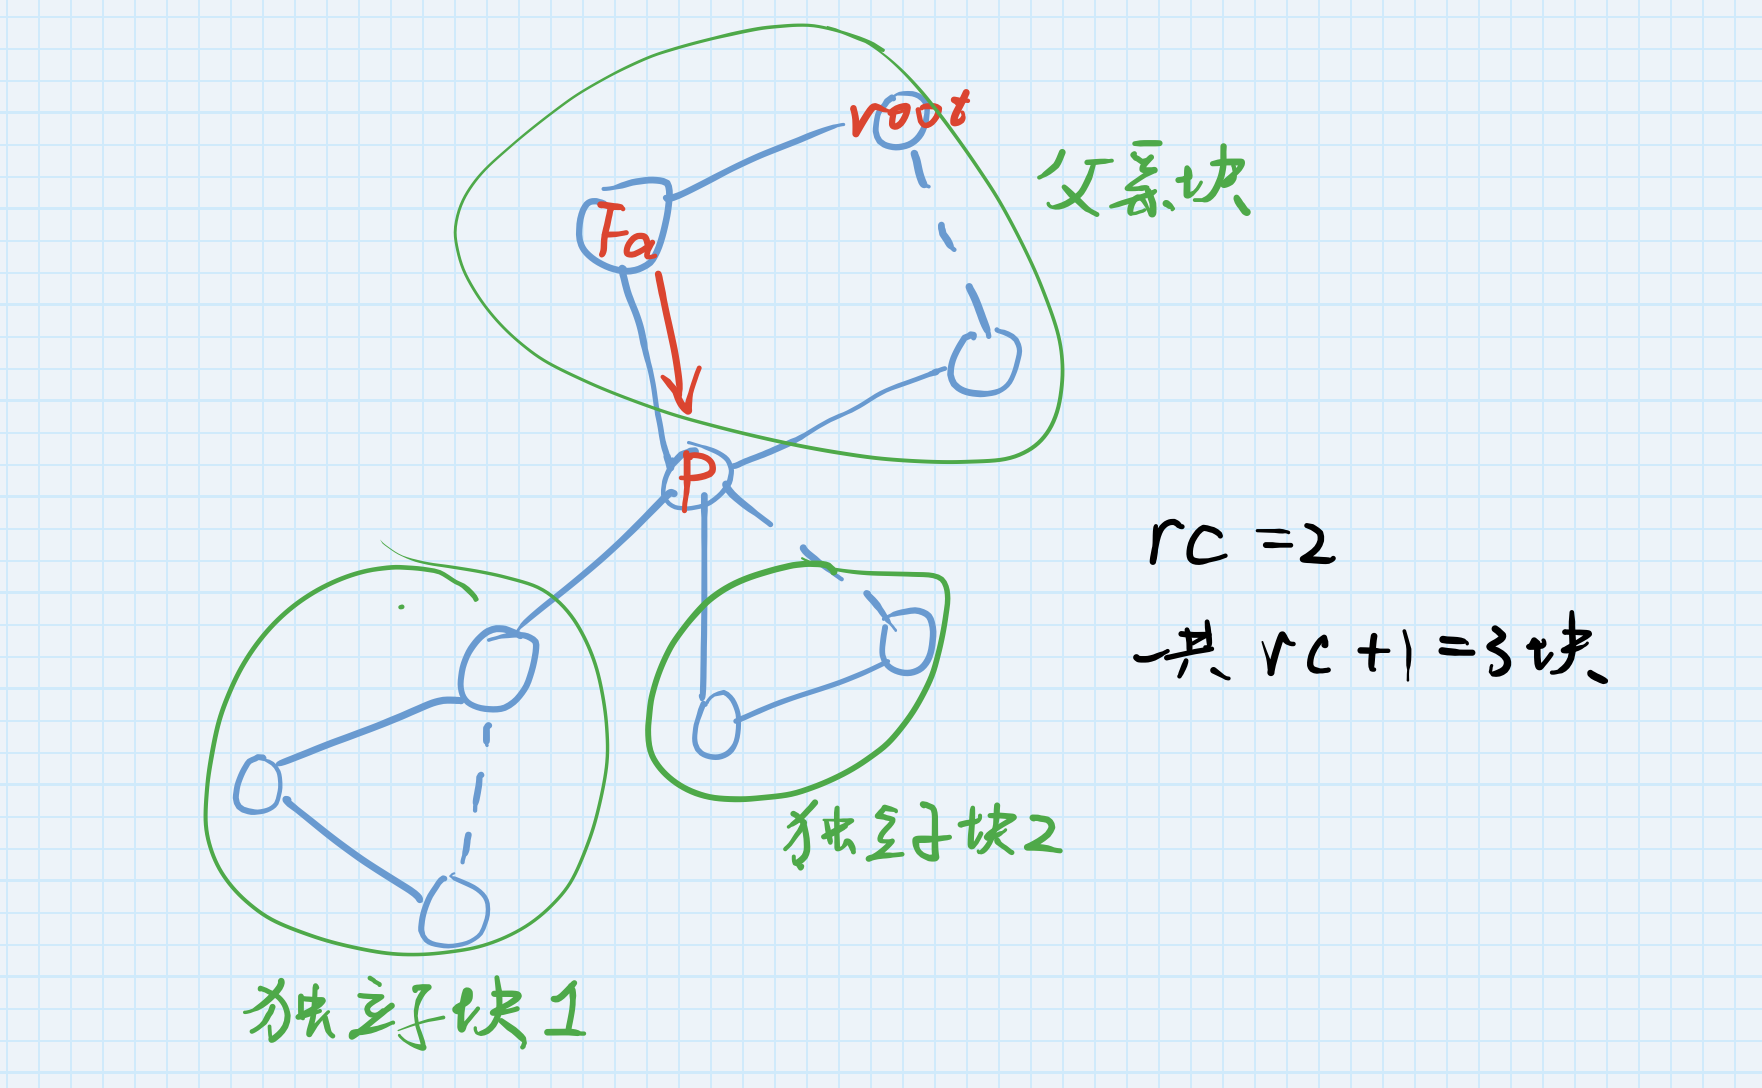 root
父亲块
Fa
P
rc=2
一共 rc+1=3块
独立子块2
独立子块1